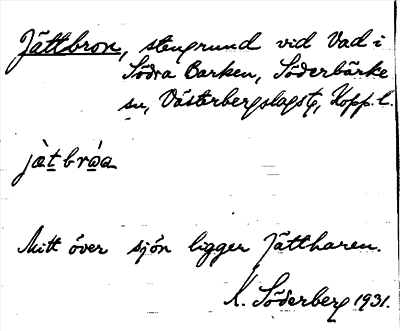 Jättbron, stengrund vid Vad i
Södra Barken, Söderbärke
sn, Västerbergslagstg, Kopp. l.
jä̀t̲brɷ̀a
Mitt över sjön ligger Jättharen.
K. Söderberg 1931.